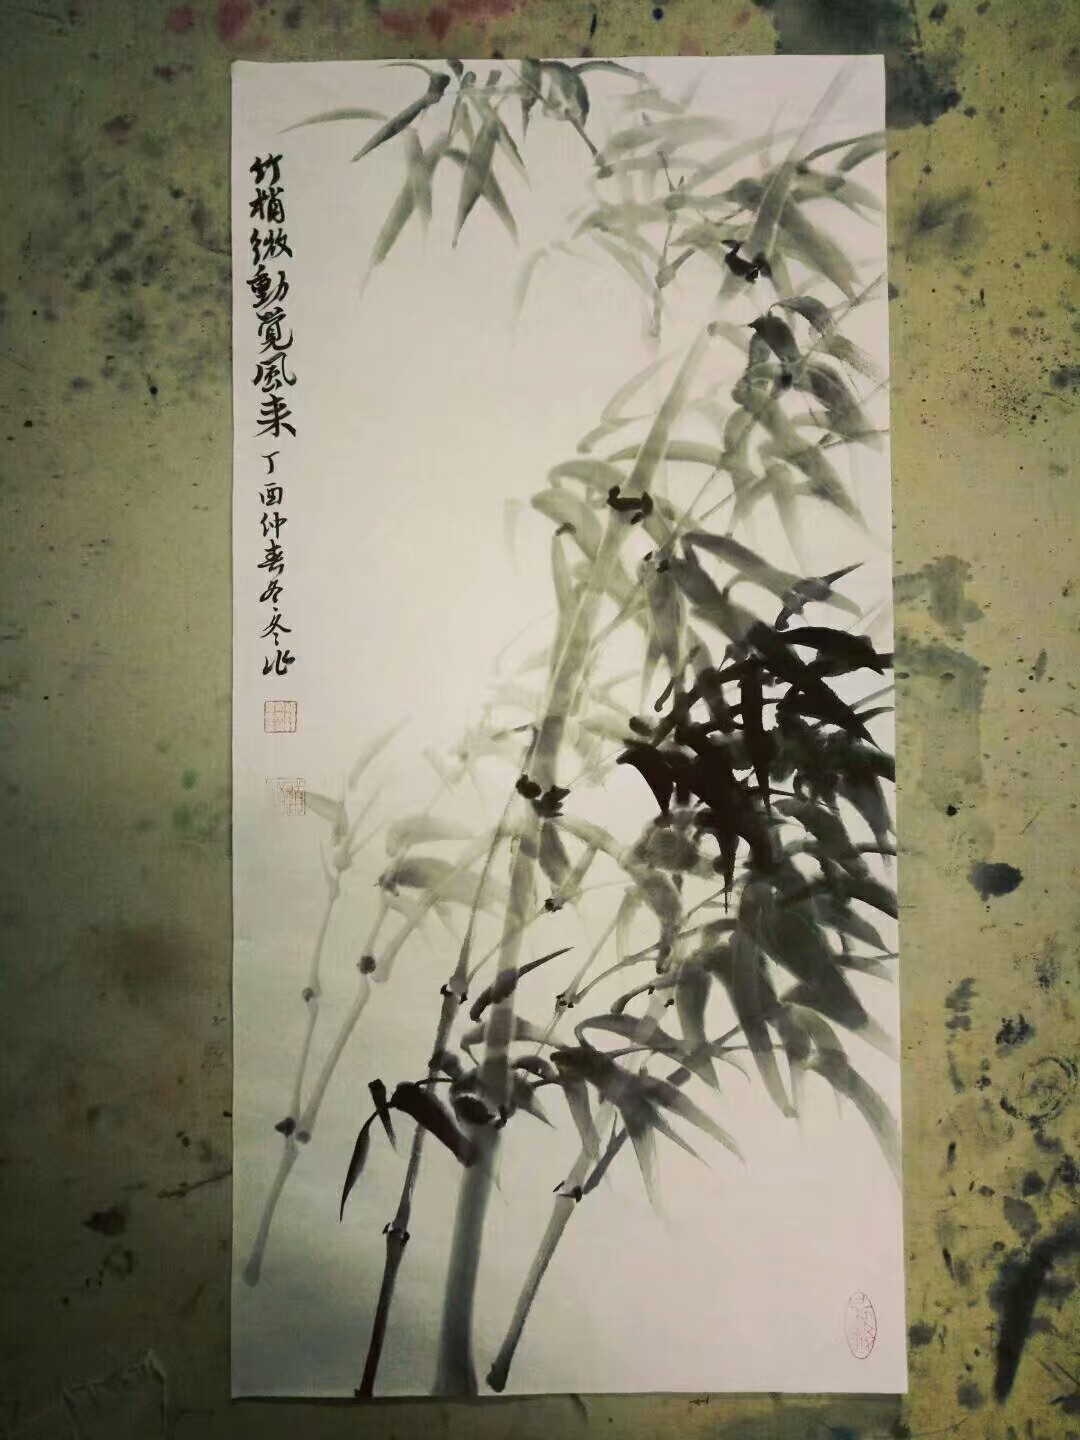 竹梢微動覺風来丁酉仲春冬冬作